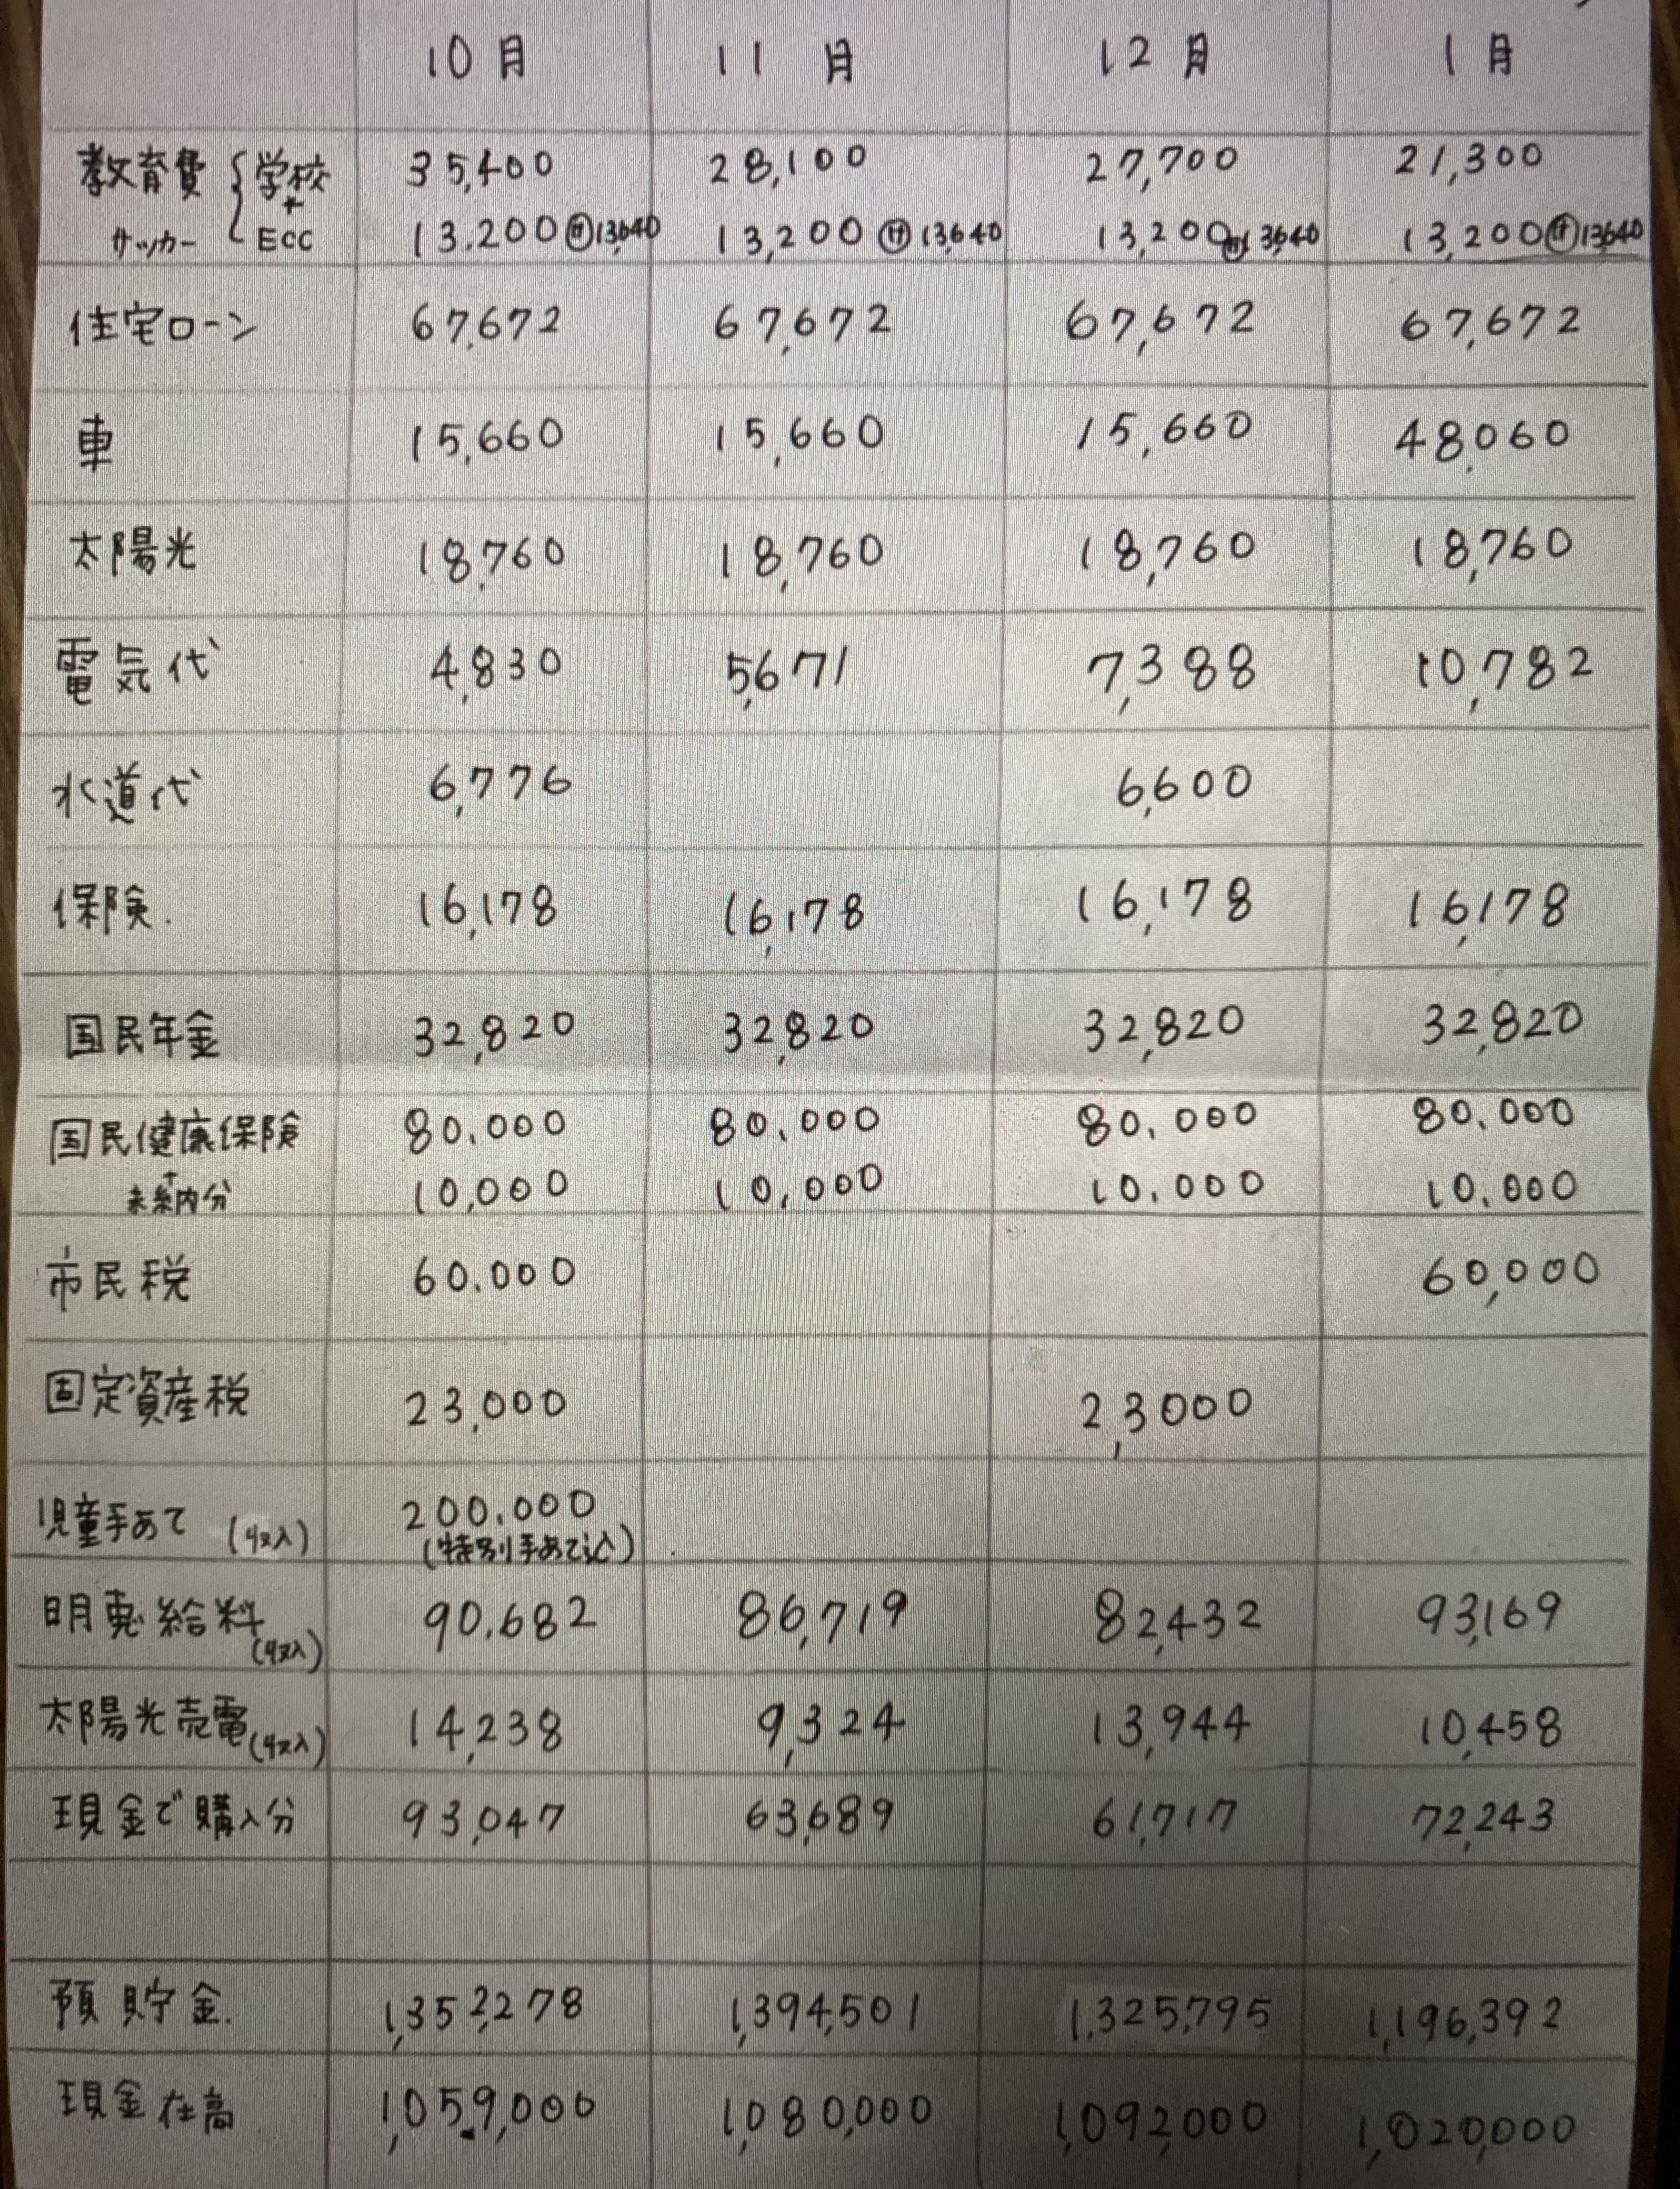 10月 11月 12月 1月
教育費 { 学校 35,400 28,100 27,700 21,300
+
サッカー ECC 13.200 ㋚13,640 13,200 ㋚13,640 13,200 ㋚13,640 13,200 ㋚13,640
住宅ローン 67,672 67,672 67,672 67,672
車 15,660 15,660 15,660 48,060
太陽光 18,760 18,760 18,760 18,760
電気代 4,830 5,671 7,388 10,782
水道代 6,776 6,600
保険. 16,178 16,178 16,178 16,178
国民年金 32,820 32,820 32,820 32,820
国民健康保険 80.000 80.000 80.000 80.000
+
未納分 10,000 10,000 10.000 10.000
市民税 60.000 60,000
固定資産税 23,000 23,000
児童手あて (収入) 200.000
(特別手あて込)
明恵給料 (収入) 90.682 86,719 82,432 93,169
太陽光売電 (収入) 14,238 9,324 13,944 10,458
現金で購入分 93,047 63,689 61,717 72,243
預貯金. 1,352,278 1,394,501 1,325,795 1,196,392
現金在高 1,059,000 1,080,000 1,092,000 1,020,000